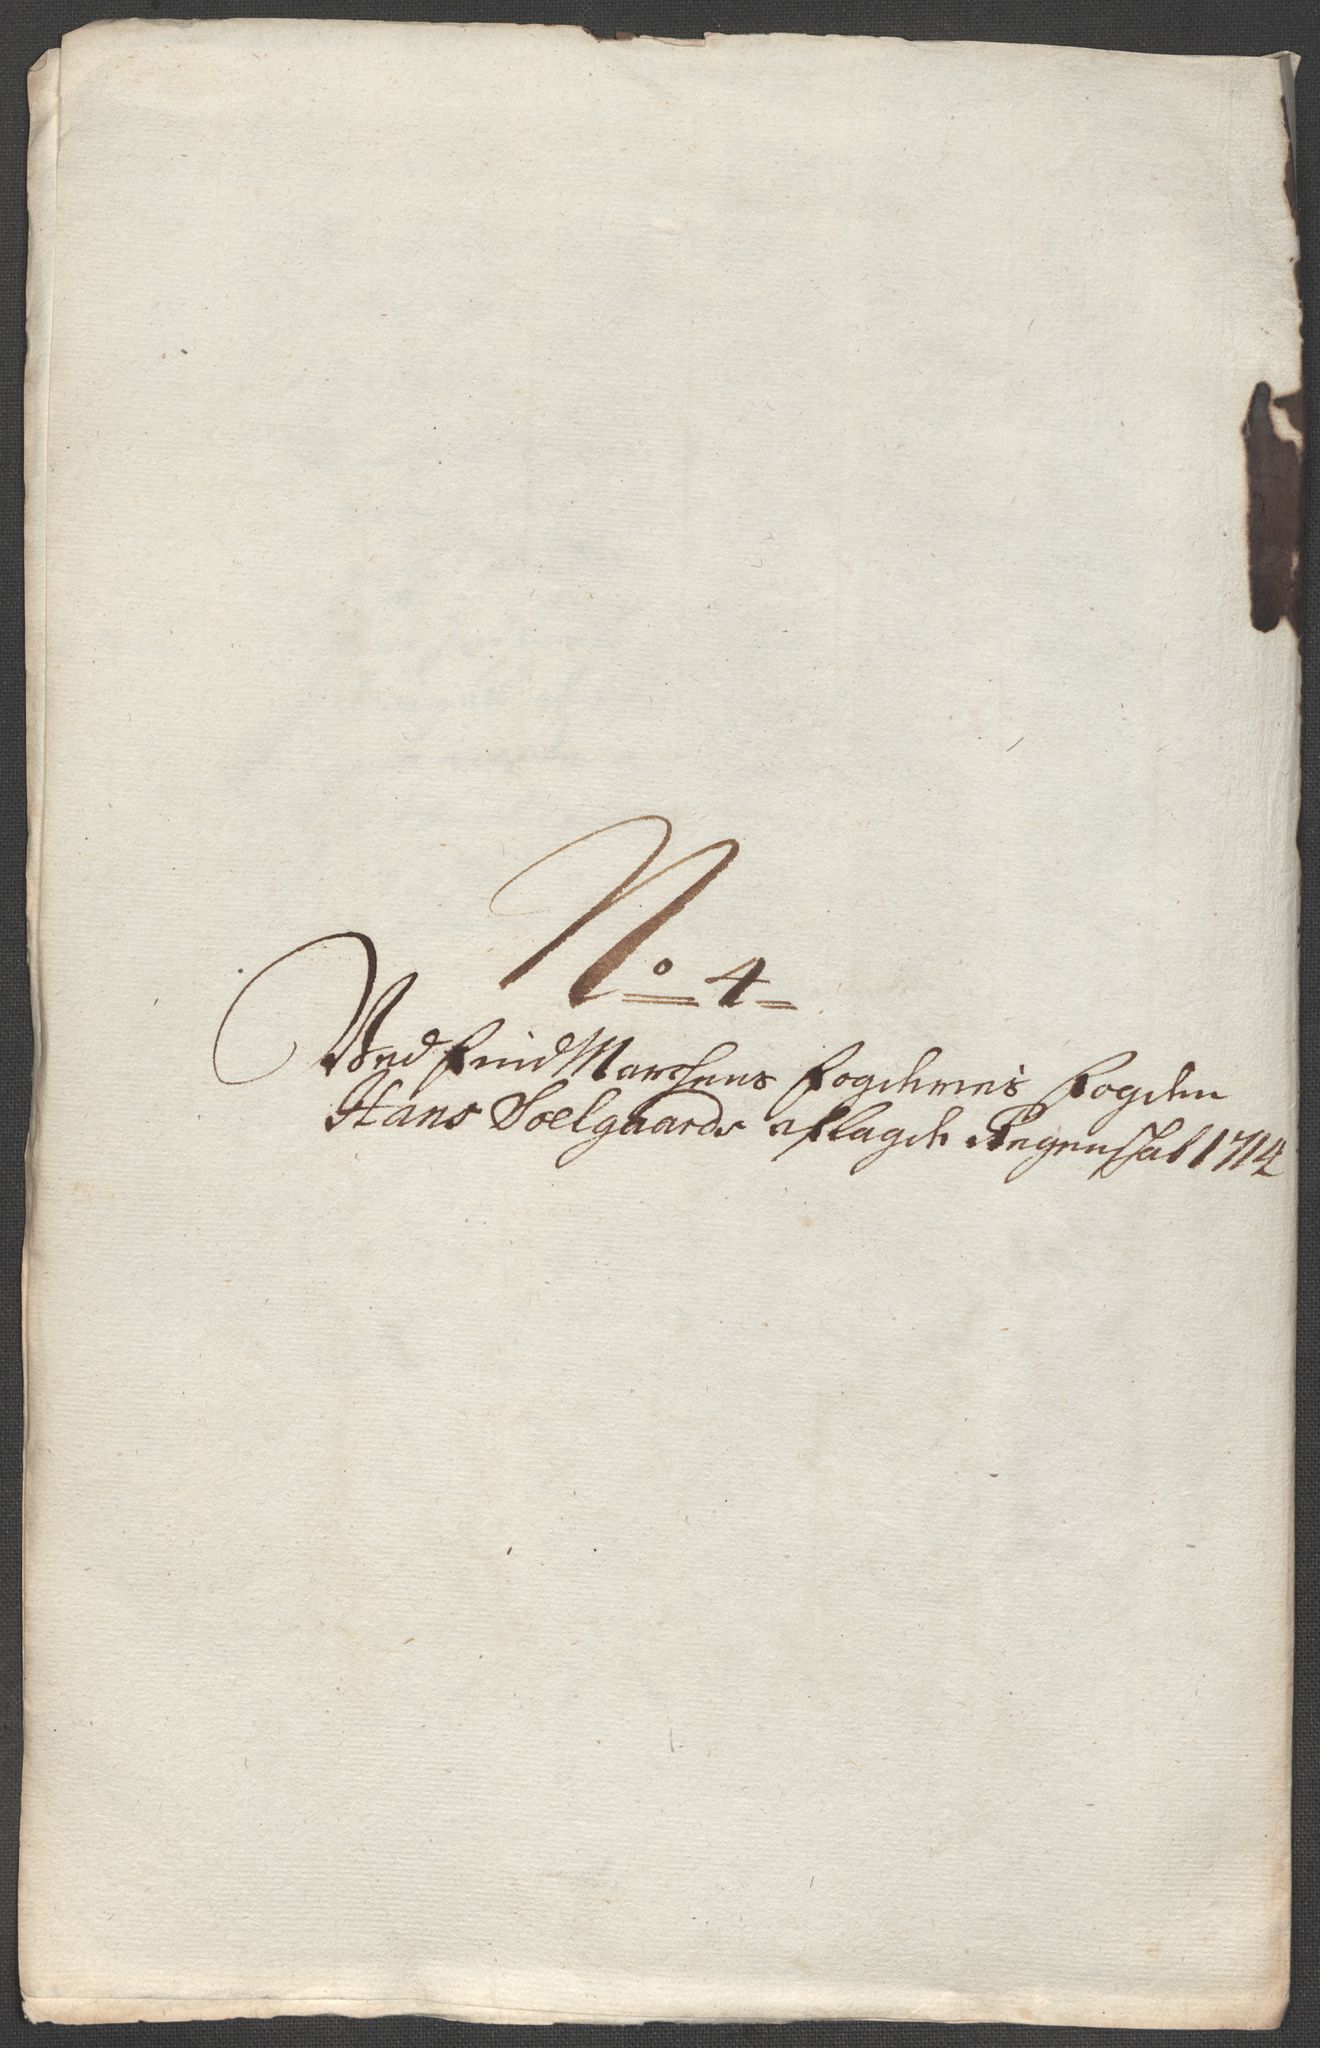 No 4
Ved Find Marchens fogderies fogden
Hans Soelgaards aflagde Regenskab 1714